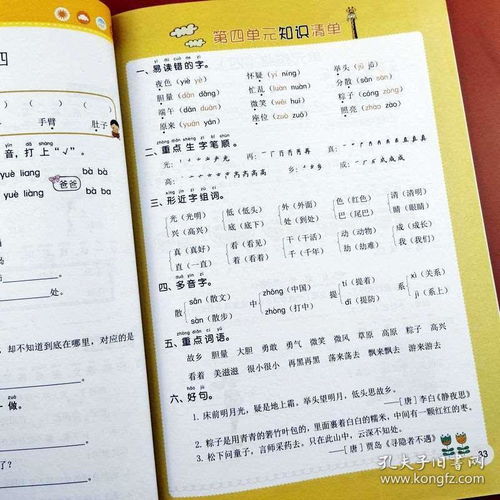 四
手臂 肚子
音,打上“√”。
yuè liàng bà ba
yuè liang 爸爸 bà bà
处。
却不知道到底在哪里,对应的是
一做。
了?
第四单元知识清单
yì dú cuò de zì
一、易读错的字。
夜色(yiè yè) 怀疑(yí níng) 举头(jǔ jǔ)
胆量(dǎn dǎng) 忙乱(luàn nuàn) 分散(sǎn sàn)
端午(dān duān) 微笑(wēi huī) 粽子(cóng zòng)
原来(yuán yán) 座位(zuò zuò) 照亮(zhào zào)
zhòng diǎn shēng zì bǐ shùn
二、重点生字笔顺。
光: 再:
高: 乡: 成:
xíng jìn zì zǔ cí
三、形近字组词。
光(光明) 低(低头) 外(外面) 色(红色) 清(清明)
兴(高兴) 底(底下) 处(处处) 巴(尾巴) 睛(眼睛)
真(真好) 看(看见) 干(干活) 动(动物) 成(成长)
直(一直) 着(看着) 千(千年) 劫(劫难) 我(我们)
duō yīn zì
四、多音字。
散 sǎn(散文) 中 zhōng(中国) 提 tí(提着) 系 xì(关系)
sàn(散步) zhòng(打中) dī(提防) jì(系上)
zhòng diǎn cí yǔ
五、重点词语。
故乡 胆量 大胆 勇敢 勇气 微笑 微风 草原 高原 粽子 高兴
看着 美滋滋 很小很小 再黑再黑 荡来荡去 飘来飘去 游来游去
hǎo jù
六、好句。
1. 床前明月光,疑是地上霜。举头望明月,低头思故乡。
——[唐]李白《静夜思》
2. 粽子是用青青的箬竹叶包的,里面裹着白白的糯米,中间有一颗红红的枣。
3. 松下问童子,言师采药去。只在此山中,云深不知处。
——[唐]贾岛《寻隐者不遇》
33
孔夫子旧书网